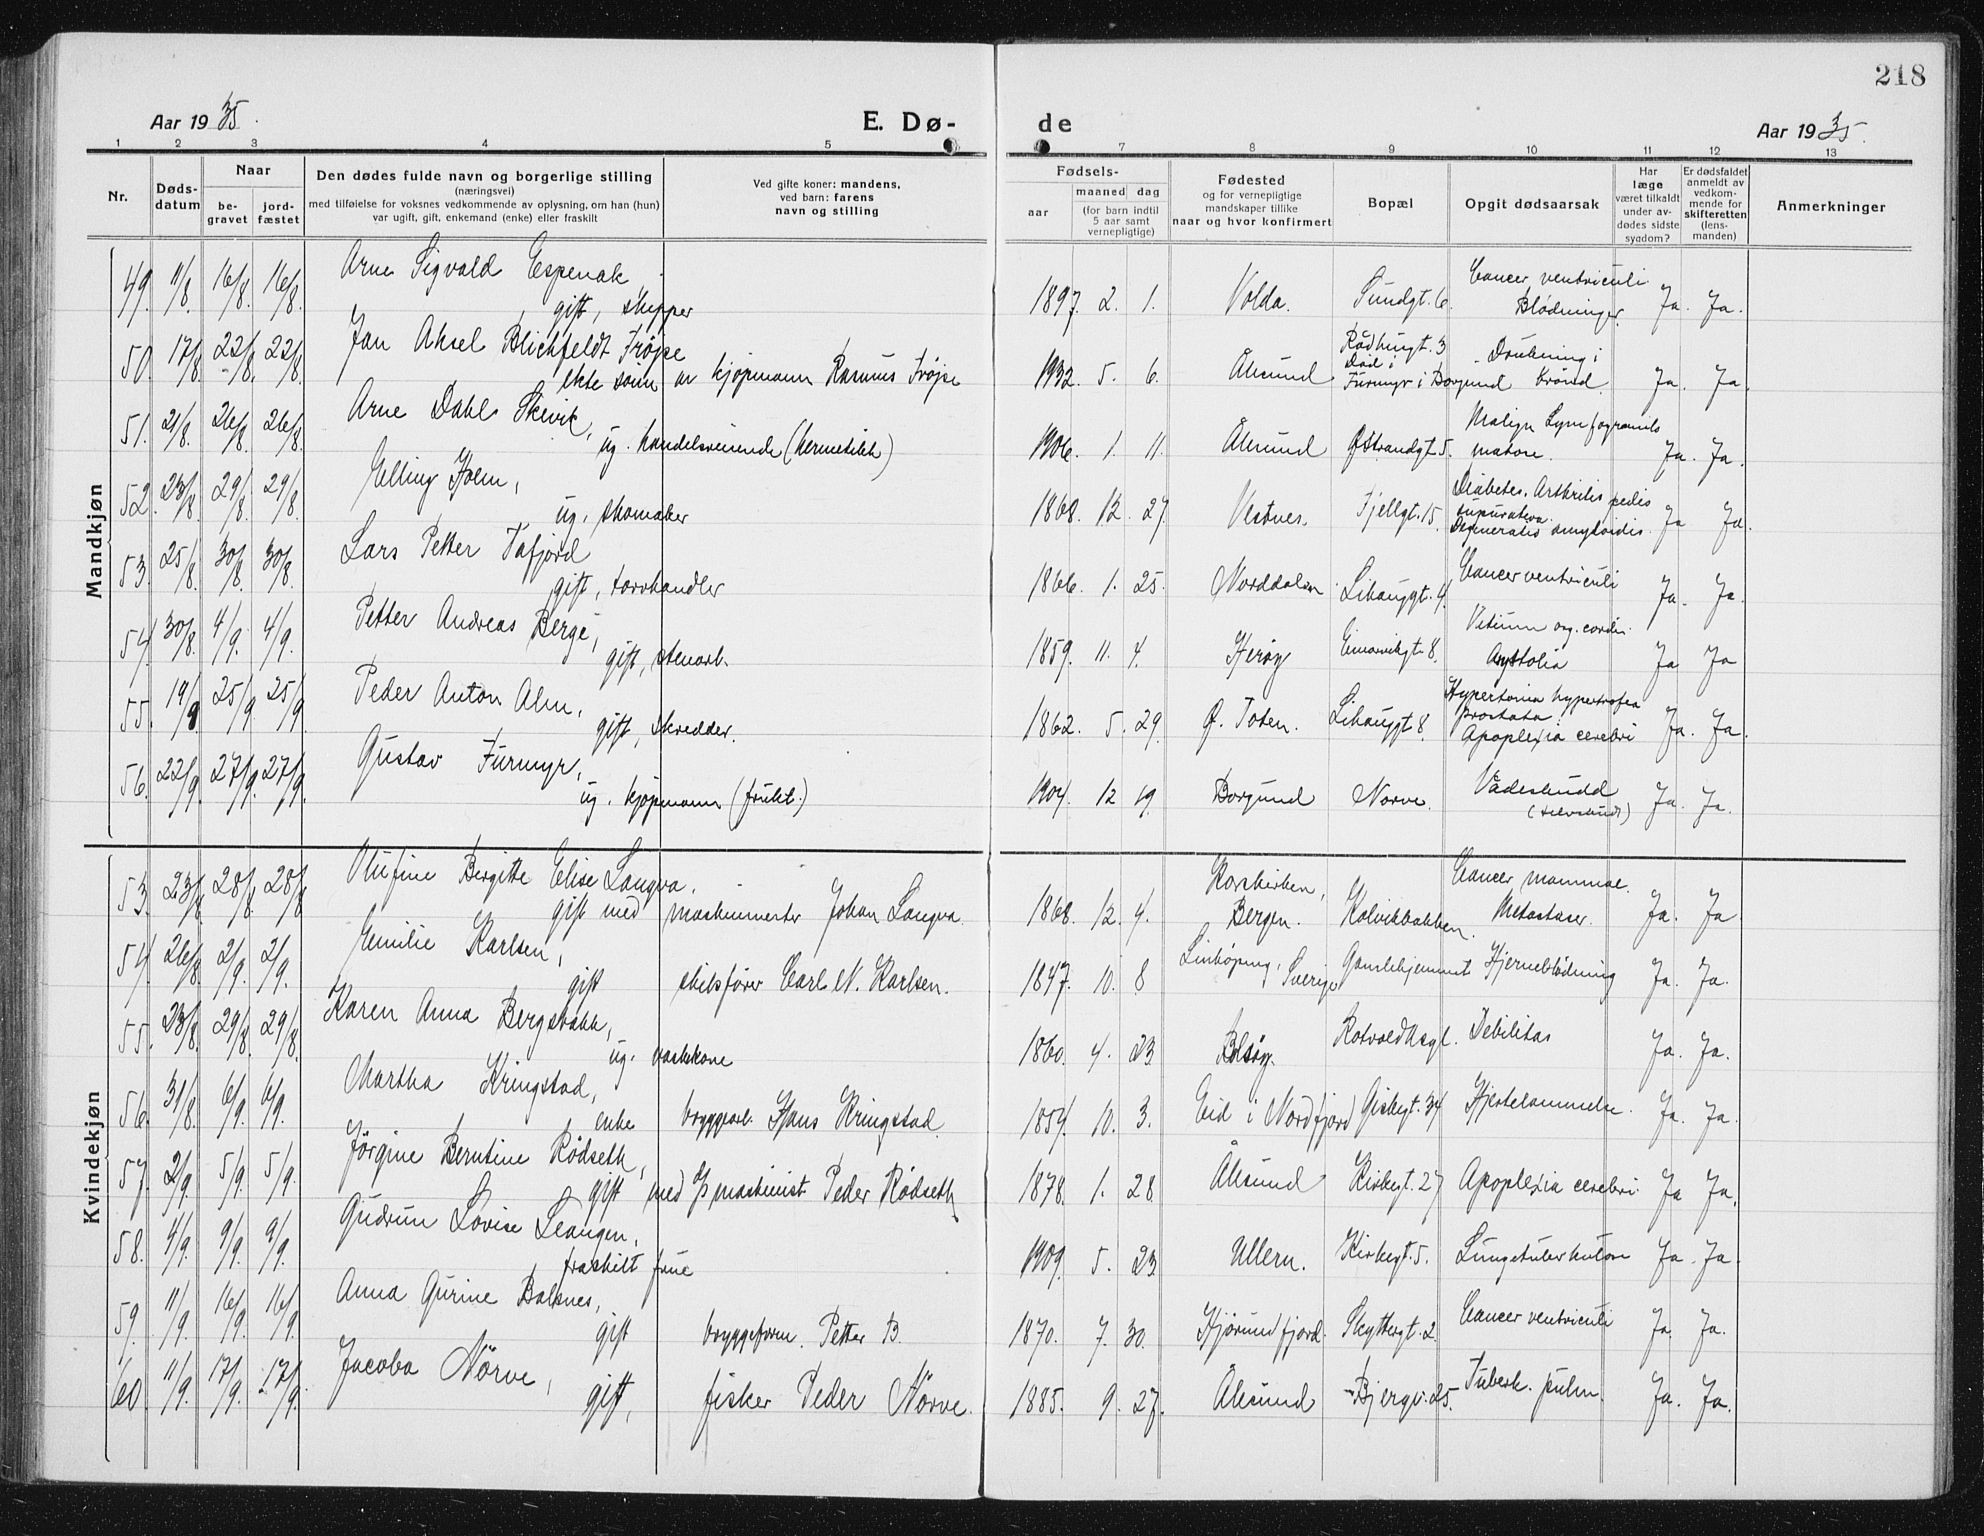 218
Aar 1935.
E. Dø-
de
Aar 1935.
1 2 3 4 5 7 8 9 10 11 12 13
Nr.
Døds-datum
Naar
be-gravet
jord-fæstet
Den dødes fulde navn og borgerlige stilling
(næringsvei)
med tilføielse for voksnes vedkommende av oplysning, om han (hun)
var ugift, gift, enkemand (enke) eller fraskilt
Ved gifte koner: mandens,
ved barn: farens
navn og stilling
Fødsels-
aar
maaned dag
(for barn indtil
5 aar samt
vernepligtige)
Fødested
og for vernepligtige
mandskaper tillike
naar og hvor konfirmert
Bopæl
Opgit dødsaarsak
Har
læge
været tilkaldt
under av-
dødes sidste
sygdom?
Er dødsfaldet
anmeldt av
vedkom-
mende for
skifteretten
(lens-
manden)
Anmerkninger
Mandkjøn
49. 11/8. 16/8. 16/8. Arne Sigvald Espenak, gift, skipper 1897. 2. 1. Volda. Sundgt. 6. Cancer ventriculi. Blødninger. Ja. Ja.
50. 17/8. 22/8. 22/8. Jan Aksel Blichfeldt Frøjse ekte sønn av kjøpmann Rasmus Frøjse 1932. 5. 6. Ålesund Rådhusgt. 3 Død i Furmyr i Borgund Drukning i brønd. Ja. Ja.
51. 21/8. 26/8. 26/8. Arne Dahl Skeivik, ug. handelsreisende (hermetikk) 1906. 1. 11. Ålesund Ø Strandgt 5. Malign Lymfogranulo matose. Ja. Ja.
52. 23/8. 29/8. 29/8. Elling Holm, ug. skomaker 1868. 12. 27. Vestnes. Fjellgt. 15. Diabetes. Arthritis pedis supurativa. Degeneratio amyloidis. Ja Ja.
53. 25/8. 30/8. 30/8. Lars Petter Tafjord gift, torvhandler 1866. 1. 25. Norddalen. Lihauggt. 4. Cancer ventriculi Ja. Ja.
54. 30/8. 4/9. 4/9. Petter Andreas Berge, gift, stenarb. 1859. 11. 4. Herøy Einarvikgt. 8. Vitium org. cordis. Asystolia Ja Ja
55. 19/9 25/9 25/9 Peder Anton Alm, gift, skredder. 1862. 5. 29. Ø. Toten. Lihauggt 8. Hypertonia hypertrofea prostata. Apoplexia cerebri Ja. Ja.
56. 22/9. 27/9. 27/9. Gustav Furmyr, ug. kjøpmann (frukt.) 1904. 12 19. Borgund Nørve. Vådeskudd (selvskudt) Ja. Ja.
Kvindekjøn
53. 23/8. 28/8. 28/8 Olufine Bergitte Elise Langva. gift med maskinmester Johan Langva. 1868. 12. 4. Korskirken, Bergen. Kolvikbakken. Cancer mammae. Metastaser. Ja. Ja
54. 26/8. 2/9. 2/9. Emilie Karlsen, gift skibsfører Carl N. Karlsen. 1847. 10. 8 Linköping, Sverige Gamlehjemmet Hjerneblødning Ja. Ja.
55. 23/8. 29/8. 29/8. Karen Anna Bergsbakk, ug. vaskekone 1860. 4. 23 Bolsøy. Rotvoldhsgl. Debilitas Ja. Ja.
56. 31/8. 6/9. 6/9. Martha Kringstad, enke bryggearb. Hans Kringstad. 1854. 10. 3. Eid i Nordfjord Giskegt. 34 Hjertelammelse. Ja. Ja.
57. 2/9. 5/9. 5/9. Jørgine Berntine Rødseth, gift med maskinist Peder Rødseth 1878. 1. 28 Ålesund Kirkegt. 27 Apoplexia cerebri. Ja Ja.
58. 4/9. 9/9. 9/9. Gudrun Lovise Leangen, fraskilt frue 1909. 5. 23 Ullern. Kirkegt. 5. Lungetuberkulose Ja. Ja.
59. 11/9. 16/9. 16/9. Anna Gurine Balsnes, gift bryggeform. Petter B. 1870. 7. 30. Hjørundfjord. Skyttergt. 2 Cancer ventriculi Ja. Ja.
60. 11/9. 17/9. 17/9. Jacoba Nørve, gift, fisker Peder Nørve. 1885. 9. 27. Ålesund Bjergv. 25. Tuberk. pulm. Ja. Ja.